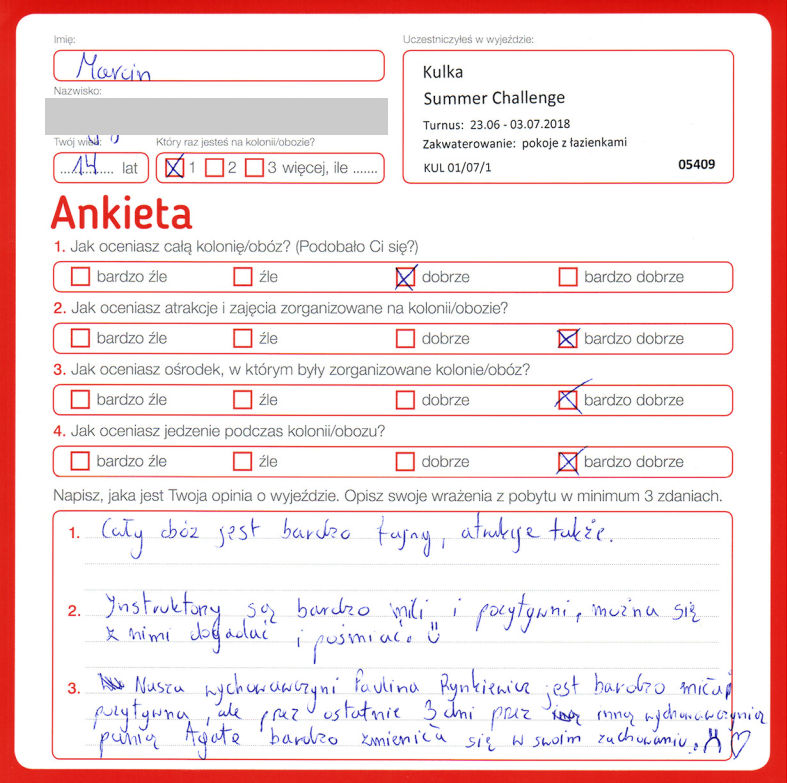 Imię:
Marcin
Nazwisko:
Twój wiek:
14 lat
Który raz jesteś na kolonii/obozie?
1 2 3 więcej, ile .......
Uczestniczyłeś w wyjeździe:
Kulka
Summer Challenge
Turnus: 23.06 - 03.07.2018
Zakwaterowanie: pokoje z łazienkami
KUL 01/07/1 05409
Ankieta
1. Jak oceniasz całą kolonię/obóz? (Podobało Ci się?)
bardzo źle źle dobrze bardzo dobrze
2. Jak oceniasz atrakcje i zajęcia zorganizowane na kolonii/obozie?
bardzo źle źle dobrze bardzo dobrze
3. Jak oceniasz ośrodek, w którym były zorganizowane kolonie/obóz?
bardzo źle źle dobrze bardzo dobrze
4. Jak oceniasz jedzenie podczas kolonii/obozu?
bardzo źle źle dobrze bardzo dobrze
Napisz, jaka jest Twoja opinia o wyjeździe. Opisz swoje wrażenia z pobytu w minimum 3 zdaniach.
1. Cały obóz jest bardzo fajny, atrakcje także.
2. Ynstruktorzy są bardzo mili i pozytywni, można się
z nimi dogadać i pośmiać.
3. Nasza wychowawczyni Paulina Rynkiewicz jest bardzo miła i
pozytywna, ale przez ostatnie 3 dni przez inną wychowawczynią
panią Agatę bardzo zmieniła się w swoim zachowaniu.